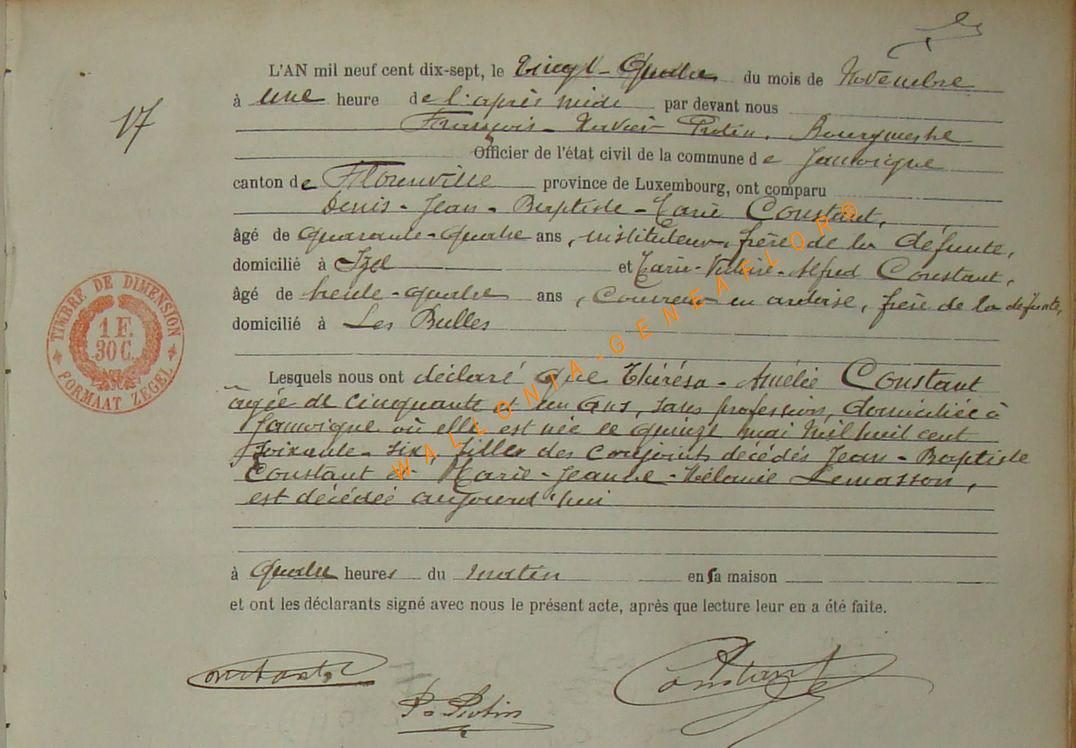 17
L'AN mil neuf cent dix-sept, le Vingt-Quatre du mois de Novembre
à une heure de l'après midi par devant nous
François-Xavier Bourgmestre
Officier de l'état civil de la commune de Jamoigne
canton de Florenville province de Luxembourg, ont comparu
Denis-Jean-Baptiste-Marie Constant,
âgé de quarante-quatre ans, instituteur, frère de la défunte,
domicilié à Izel et Marie-Alfred Constant,
âgé de trente-quatre ans, Couvreur en ardoise, frère de la défunte,
domicilié à Les Bulles
Lesquels nous ont déclaré que Thérésa-Amélie Constant
agée de cinquante et un ans, sans profession, domiciliée à
Jamoigne où elle est née le quinze mai mil huit cent
soixante-six fille des conjoints décédés Jean-Baptiste
Constant et Marie-Jeanne-Mélanie Lemasson,
est décédée aujourd'hui
à quatre heures du matin en sa maison
et ont les déclarants signé avec nous le présent acte, après que lecture leur en a été faite.
Constant
Constant
TIMBRE DE DIMENSION
1 F.
30 C.
FORMAAT ZEGEL
WALLONIA-GENEAFLOR®